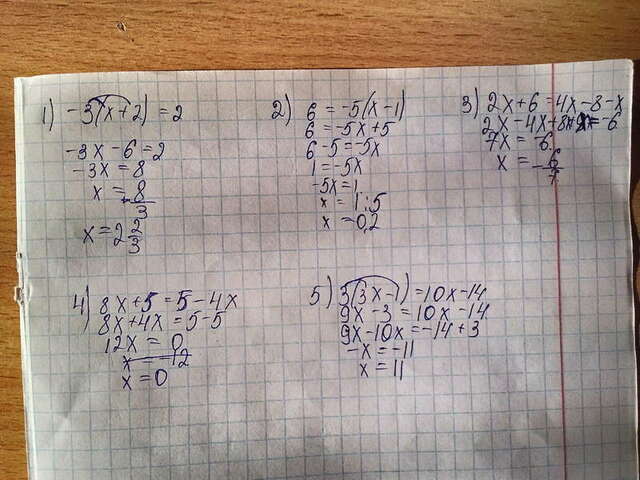 1) -3(x+2) = 2
-3x - 6 = 2
-3x = 8
x = 8/3
x = 2 2/3
2) 6 = -5(x-1)
6 = -5x+5
6-5 = -5x
1 = -5x
-5x = 1
x = 1:5
x = 0,2
3) 2x+6 = 4x-8-x
2x-4x+8x = -6
7x = -6
x = -6/7
4) 8x+5 = 5-4x
8x+4x = 5-5
12x = 0
x = 12
x = 0
5) 3(3x-1) = 10x-14
9x-3 = 10x-14
9x-10x = -14+3
-x = -11
x = 11